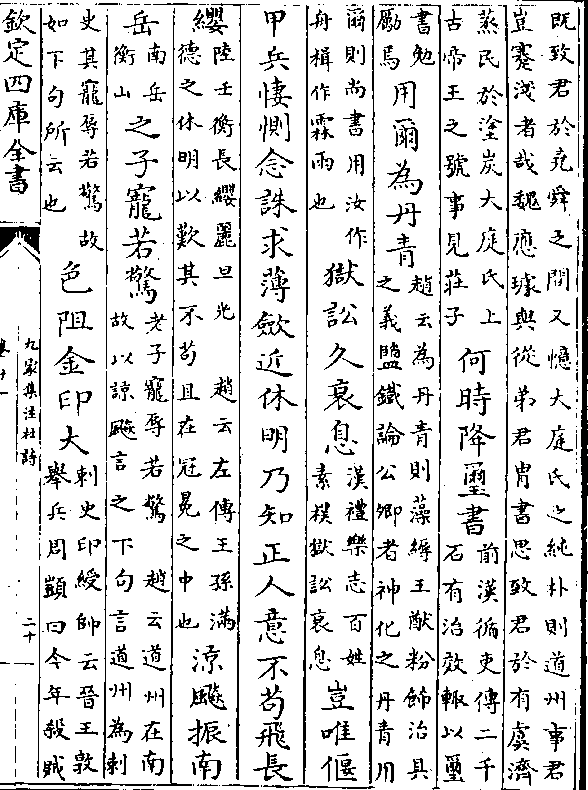 既致君於堯舜之間又憶大庭氏之純朴則道州事君
豈蹇淺者哉魏應璩與從弟君胄書思致君於有虞濟
蒸民於塗炭大庭氏上
古帝王之號事見莊子
何時降璽書
前漢循吏傳二千
石有治效輒以璽
書勉
勵焉
用爾為丹青
趙云為丹青則藻縟王猷粉飾治具
之義鹽鐵論公卿者神化之丹青用
爾則尚書用汝作
舟楫作霖雨也
獄訟久衰息
漢禮樂志百姓
素樸獄訟衰息
豈唯偃
甲兵悽惻念誅求薄斂近休明乃知正人意不苟飛長
纓
陸壬衡長纓麗旦光 趙云左傳王孫滿
德之休明以歎其不苟且在冠冕之中也
涼飈振南
岳
南岳
衡山
之子寵若驚
老子寵辱若驚 趙云道州在南
故以諒飈言之下句言道州為刺
史其寵辱若驚故
如下句所云也
色阻金印大
刺史印綬帥云晉王敦
舉兵周顗曰今年殺賊
欽定四庫全書
九家集注杜詩
二十